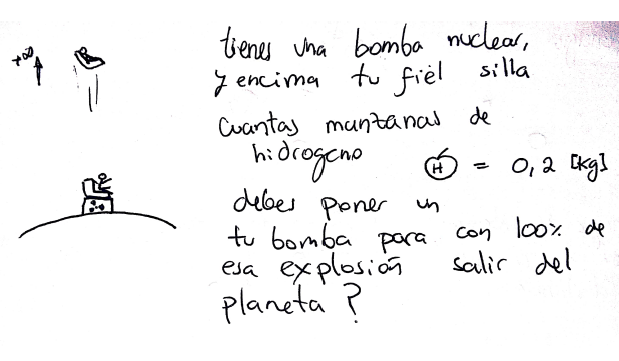 tienes una bomba nuclear,
y encima tu fiel silla
+∞
Cuantas manzanas de
hidrogeno
H = 0,2 [kg]
debes poner un
tu bomba para con 100% de
esa explosión salir del
planeta?